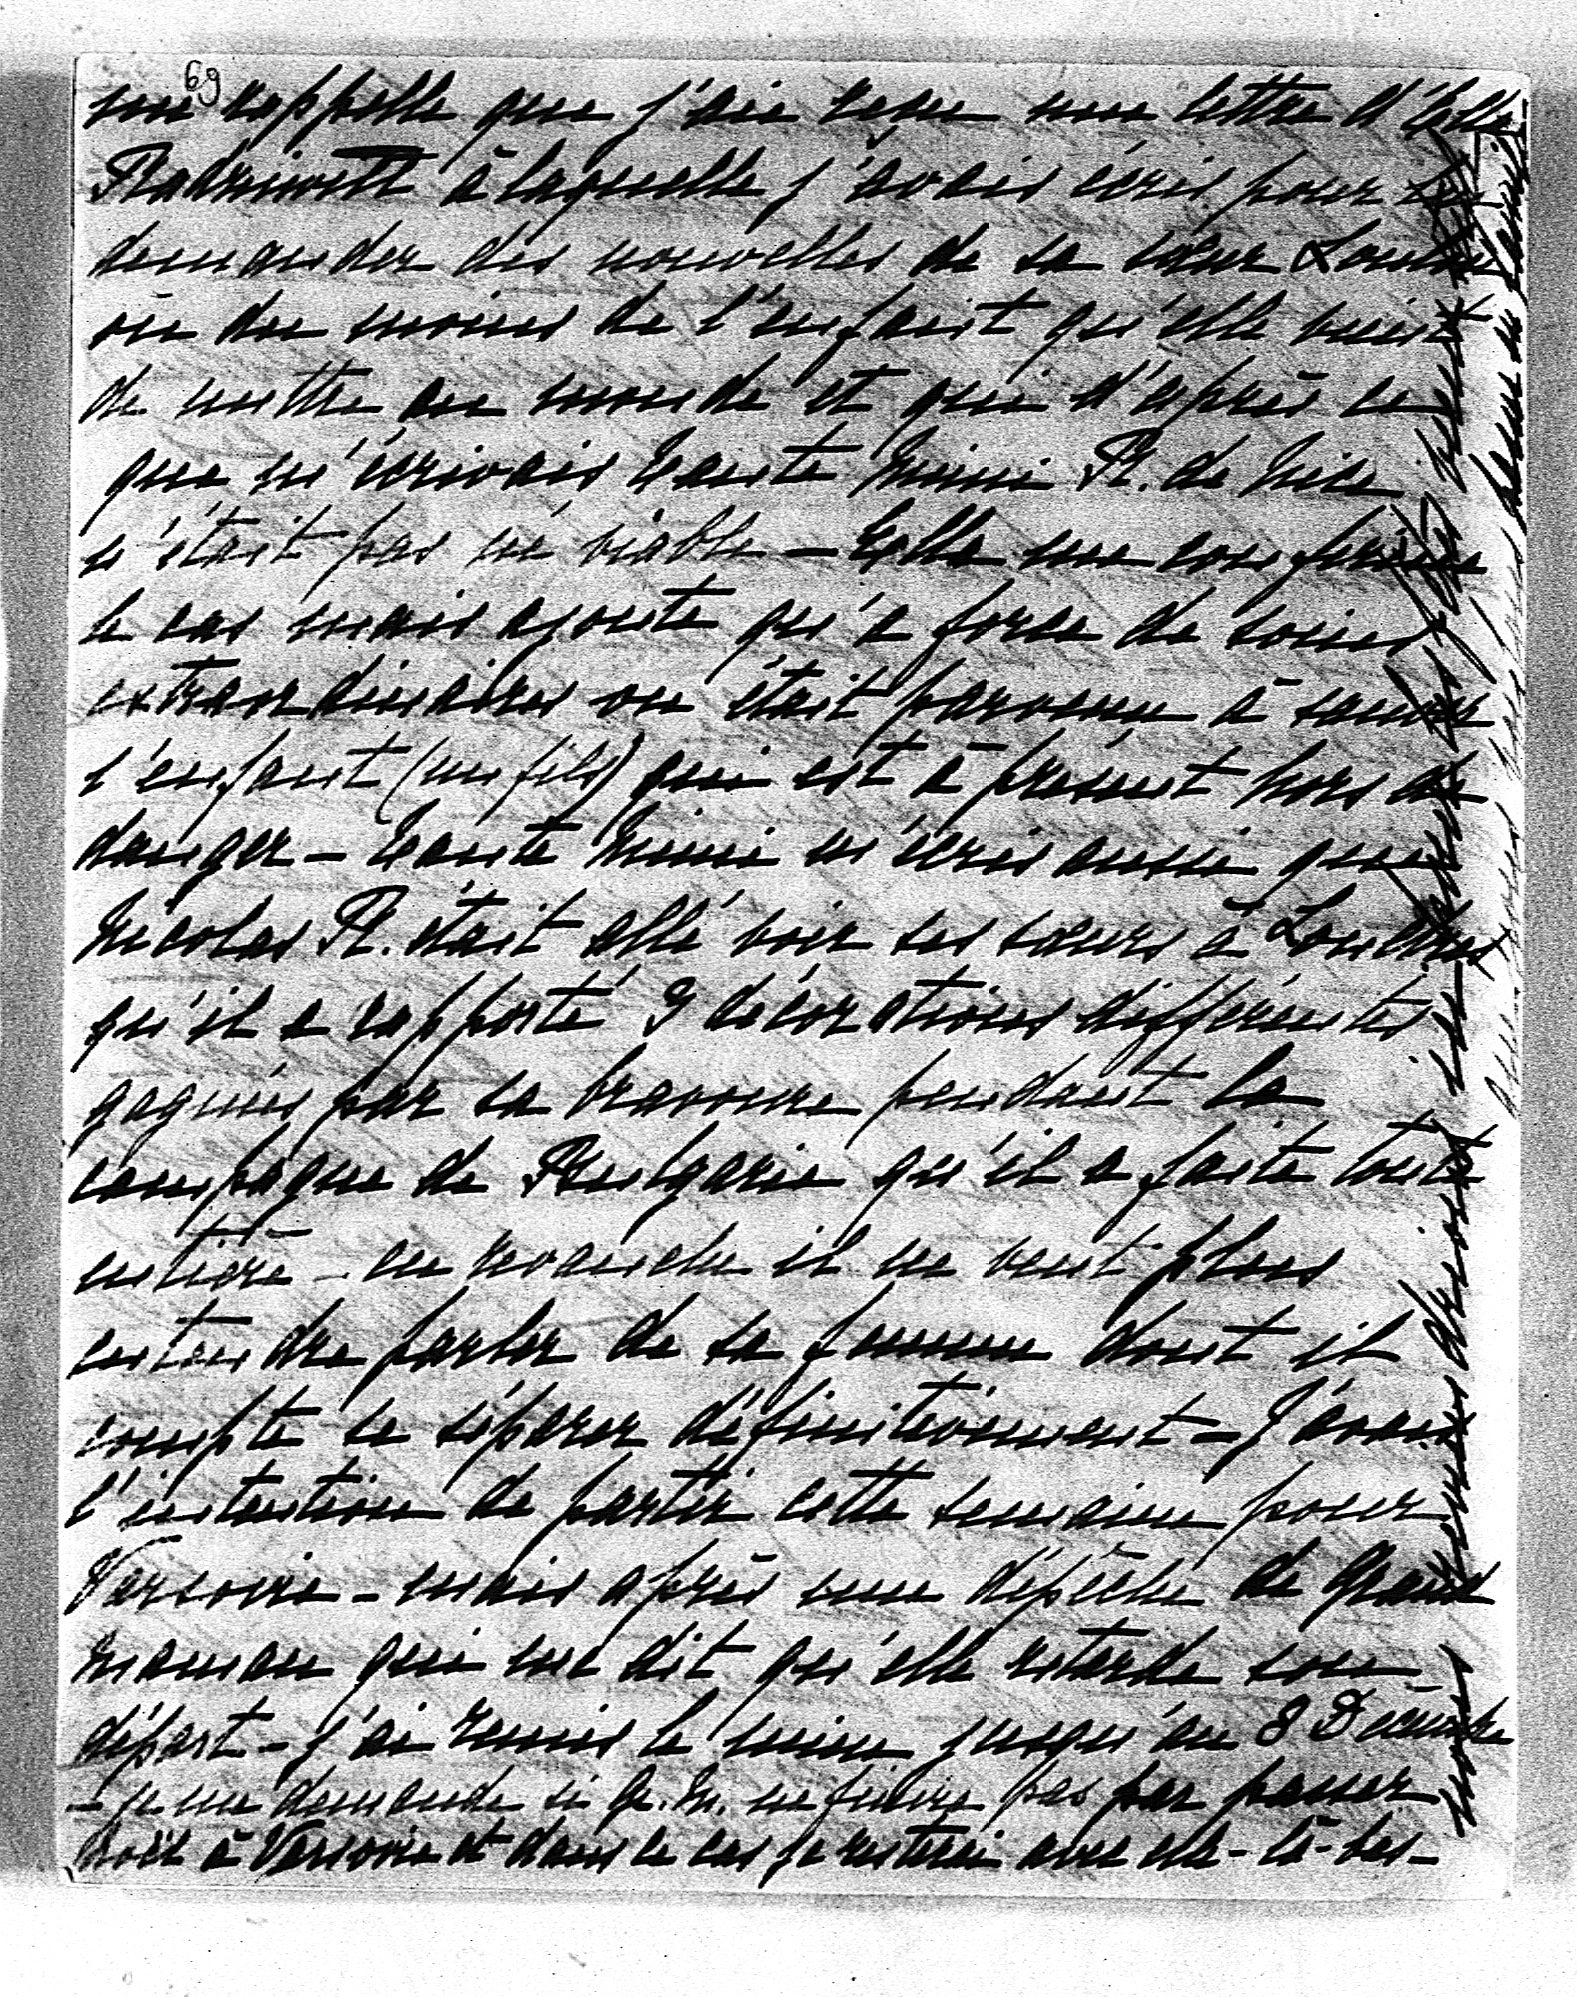 69
me rappelle que j'aie reçu une lettre d'Ella
Radziwill à laquelle j'avais écris pour lui
demander des nouvelles de sa sœur Loulou
ou du moins de l'enfant qu'elle vient
de mettre au monde et qui d'après ce
que m'écrivais tante Mimi R. de Nice
n'était pas né viable – Ella me confirme
le cas mais ajoute qu'a force de soins
extraordinaires on était parvenu à sauver
l'enfant (un fils) qui est à présent hors de
danger – tante Mimi m'écris aussi que
Nicolas R. était allé voir ses sœurs à Londres
qu'il a rapporté 9 décorations différentes
gagnées par sa bravoure pendant la
campagne de Bulgarie qu'il a faite toute
entière – en revanche il ne veut plus
entendre parler de sa femme dont il
compte se séparer définitivement – J'avais
l'intention de partir cette semaine pour
Varsovie – mais après une dépêche de Grand
maman qui me dit qu'elle retarde son
départ – j'ai remis le mien jusqu'au 8 Décembre
– je me demande si G. M. ne finira pas par passer
Noël à Varsovie et dans ce cas je resterai avec elle – là-bas –